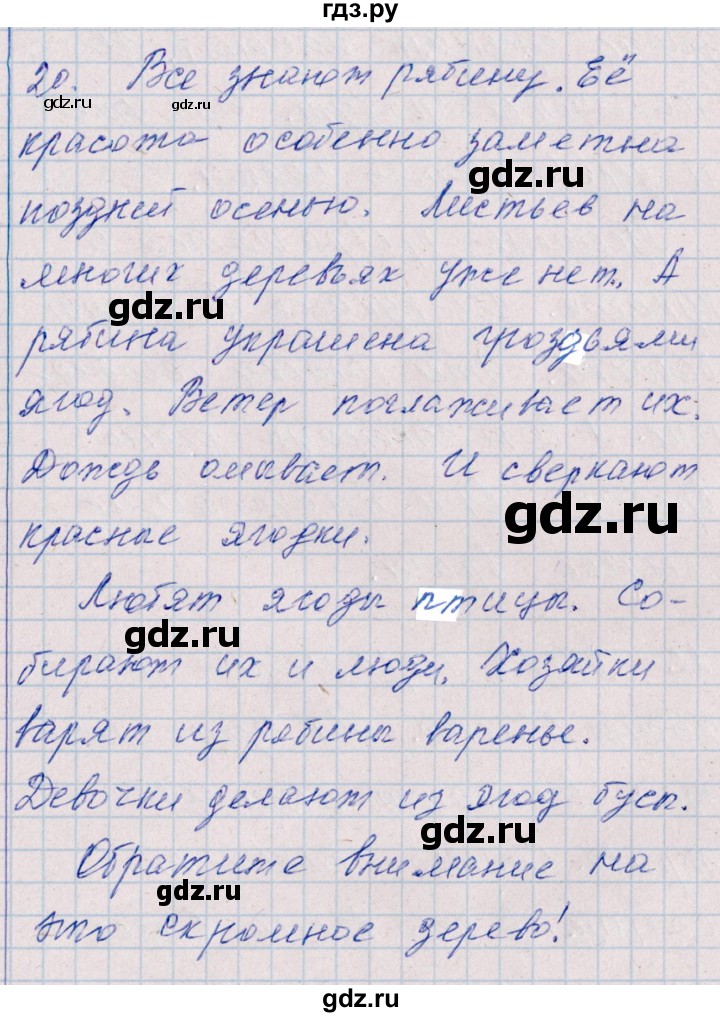 гдз.ру
20. Все знают рябину. Её
gdz.ru
gdz.ru
красота особенно заметна
gdz.ru
поздней осенью. Листьев на
многих деревьях уже нет. А
gdz.ru
рябина украшена гроздьями
ягод. Ветер поглаживает их.
Дождь омывает. И сверкают
gdz.ru
красные ягодки.
Любят ягоды птицы. Со-
gdz.ru
бирают их и люди. Хозайки
варят из рябины варенье.
Девочки делают из ягод бусы.
gdz.ru
Обратите внимание на
gdz.ru
это скромное дерево!
gdz.ru